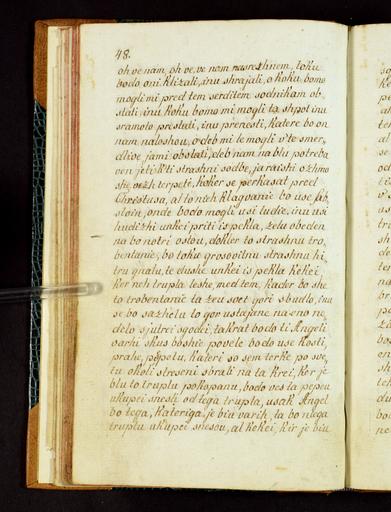 48.
oh ve nam, oh ve, ve nam nasrezhnem, toku
bodo oni klizali, inu shrajali, o koku bomo
mogli mi pred tem serditem sodnikam ob-
stati inu koku bomo mi mogli ta shpot inu
sramoto prestati, inu prenesti, katere bo on
nam naloshou, o deb mi le mogli v te smer-
dlive jami obstati, deb nam na blu potreba
ven jeti k ti strashni sodbe, ja raishi ozhmo
she vezh terpeti, koker se perkasat pred
Christusa, al to nich klaguanie bo use
onde bodo mogli usi ludie, inu usi
hudizhi unkei priti is pekla, zelu obeden
na bo notri ostou, dokler to strashnu tro-
bentanie, bo toku grosovitnu strashnu hi-
tru gnalu, te dushe unkei is pekla kekei,
ker neh trupla leshe, med tem, kadar bo she
ta trobentanie ta zeu svet gori sbudlo, inu
se bo sazhela to gor ustajene na eno ne-
delo sjutrei sgodei, takrat bodo ti Angeli
oarhi skus boshie povele bodo use kosti,
prahe, pepelu, kateri so sem terke po sve-
tu okoli streseni sbrali na ta krei, ker je
blu to truplu pokopanu, bodo ves ta pepeu
ukupei snesli od tega trupla, usak Angel
bo tega, kateriga je biu varih, ta bo niega
truplu ukupei snesou, al kekei, kir je biu